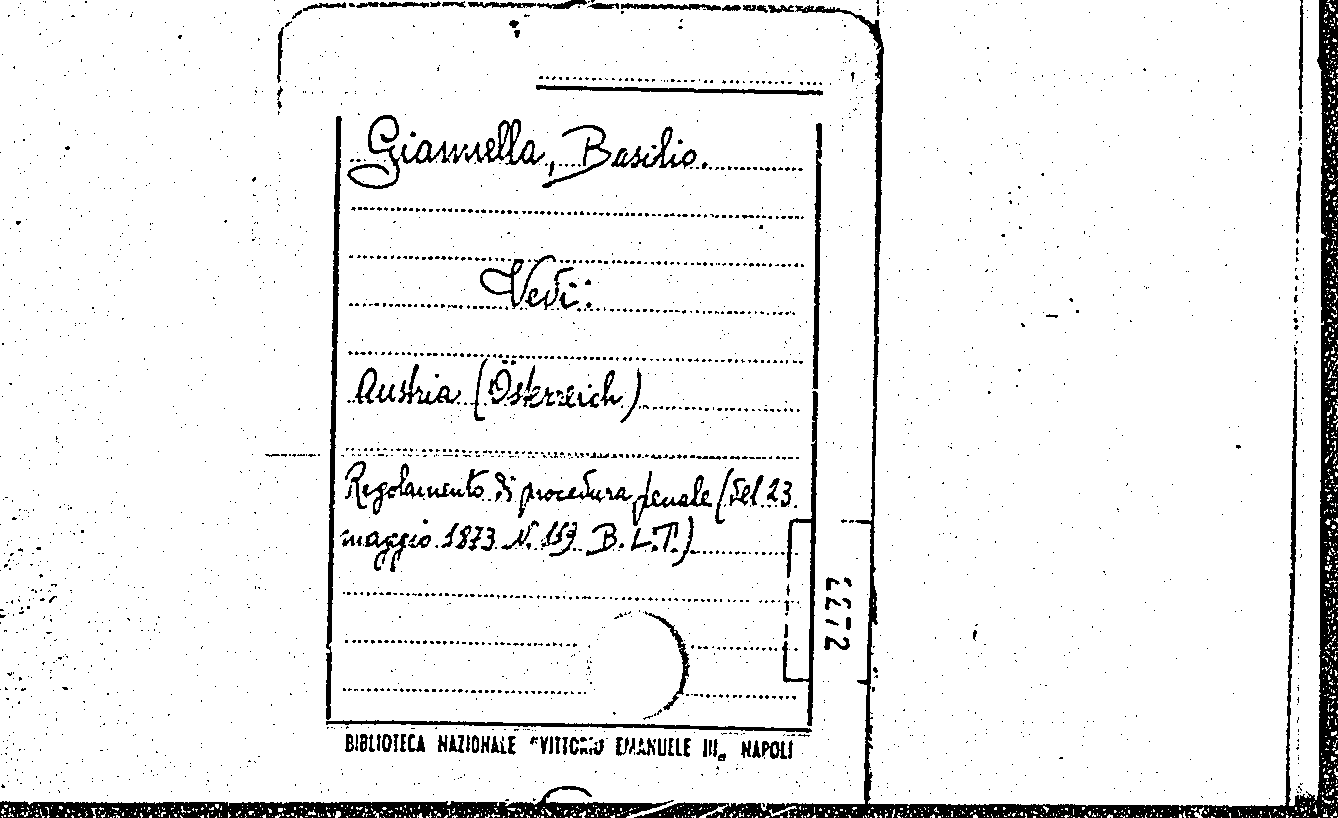 Giannella, Basilio.
Vedi:
Austria (Österreich)
Regolamento di procedura penale (del 23
maggio 1873 N. 119 B.L.I.)
2272
BIBLIOTECA NAZIONALE "VITTORIO EMANUELE III„ NAPOLI